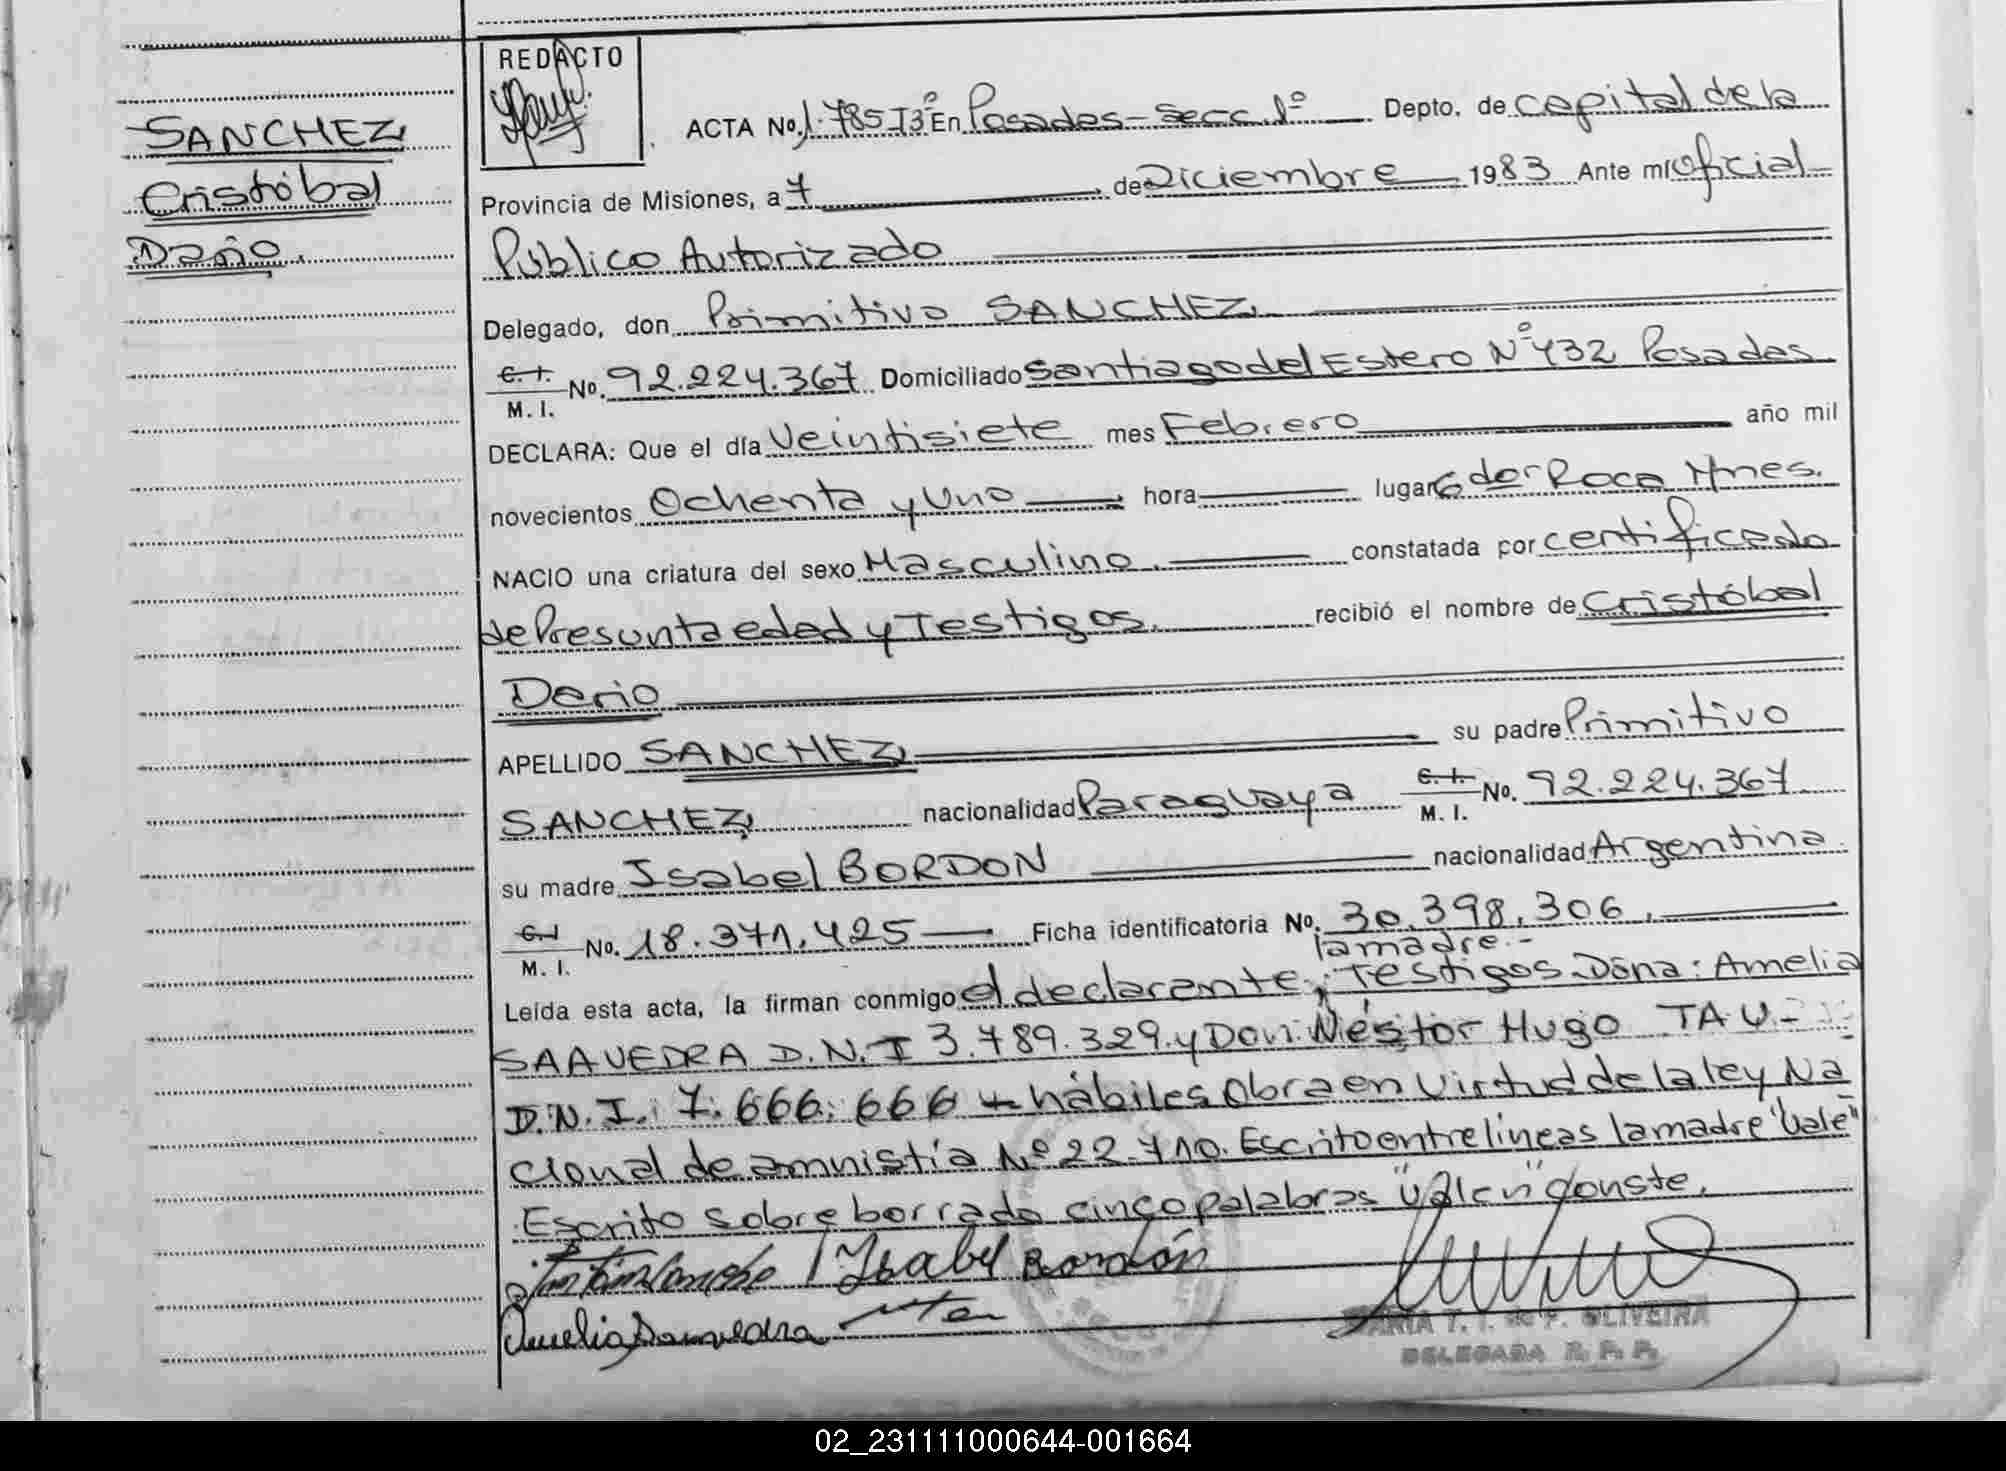 REDACTO
SANCHEZ
Cristóbal
Dario.
ACTA No. 1.785 T3º En Posadas - Secc. 1º Depto. de Capital de la
Provincia de Misiones, a 7 de Diciembre 1983 Ante mi Oficial
Público Autorizado
Delegado, don Primitivo SANCHEZ
C. I. M. I. No. 92.224.367 Domiciliado Santiago del Estero Nº 432 Posadas
DECLARA: Que el día Veintisiete mes Febrero año mil
novecientos Ochenta y Uno hora lugar Gdor Roca Mnes.
NACIO una criatura del sexo Masculino. constatada por certificado
de Presunta edad y Testigos. recibió el nombre de Cristóbal
Dario
APELLIDO SANCHEZ su padre Primitivo
SANCHEZ nacionalidad Paraguaya C. I. M. I. No. 92.224.367
su madre Isabel BORDON nacionalidad Argentina.
C. I M. I. No. 18.371.425 Ficha identificatoria No. 30.398.306.
la madre.-
Leída esta acta, la firman conmigo el declarante, Testigos Doña: Amelia
SAAVEDRA D.N.I 3.789.329 y Don: Néstor Hugo TAU-
D.N.I.: 7.666.666 hábiles Obra en Virtud de la ley Na
cional de amnistía Nº 22.710. Escrito entre lineas la madre "Vale"
Escrito sobre borrado cinco palabras "Valen" Conste.
Isabel Bordón
Amelia Saavedra
MARIA T. I. de F. OLIVEIRA
DELEGADA R. P. P.
02_231111000644-001664